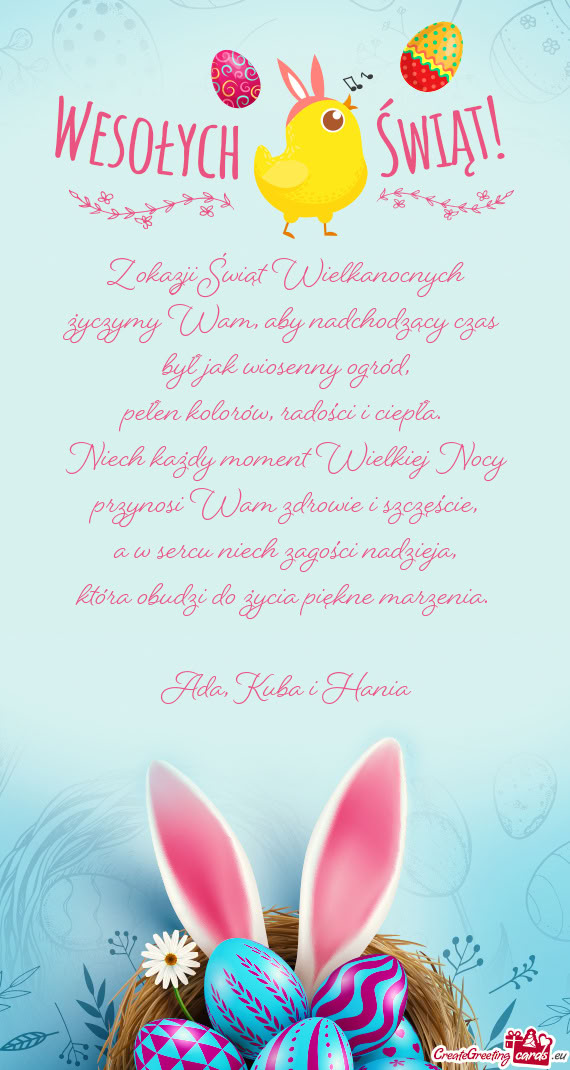 Wesołych Świąt!
Z okazji Świąt Wielkanocnych
życzymy Wam, aby nadchodzący czas
był jak wiosenny ogród,
pełen kolorów, radości i ciepła.
Niech każdy moment Wielkiej Nocy
przynosi Wam zdrowie i szczęście,
a w sercu niech zagości nadzieja,
która obudzi do życia piękne marzenia.
Ada, Kuba i Hania
CreateGreetingcards.eu